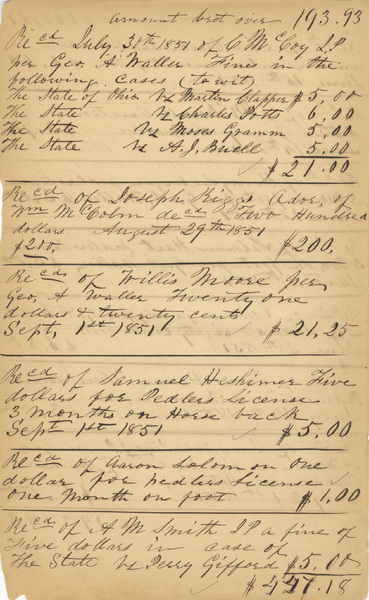 amount brot over 193.93
Recd July 30th 1851 of C McCoy J.P
per Geo. A Waller Fines in the
following cases (to wit)
The State of Ohio Vs Martin Clapper $5,00
The State Vs Charles Potts 6,00
The State Vs Moses Gramm 5.00
The State Vs A.J. Buell 5.00
$21.00
Recd of Joseph Riggs Ador, of
Wm McColm decd Two Hundred
dollars August 29th 1851 $200,
$210.
Recd of Willis Moore per
Geo, A Waller Twenty one
dollars & twenty cent
Sept, 1st 1851 $21,25
Recd of Samuel Heshimer Five
dollars for Pedlers License
3 months on Horse back
Sept 1st 1851 $5.00
Recd of Aaron Solomon one
dollar for pedlers License
one Month on foot $1.00
Recd of A M Smith J P a fine of
Five dollars in case of
The State Vs Perry Gifford $5.00
$447.18